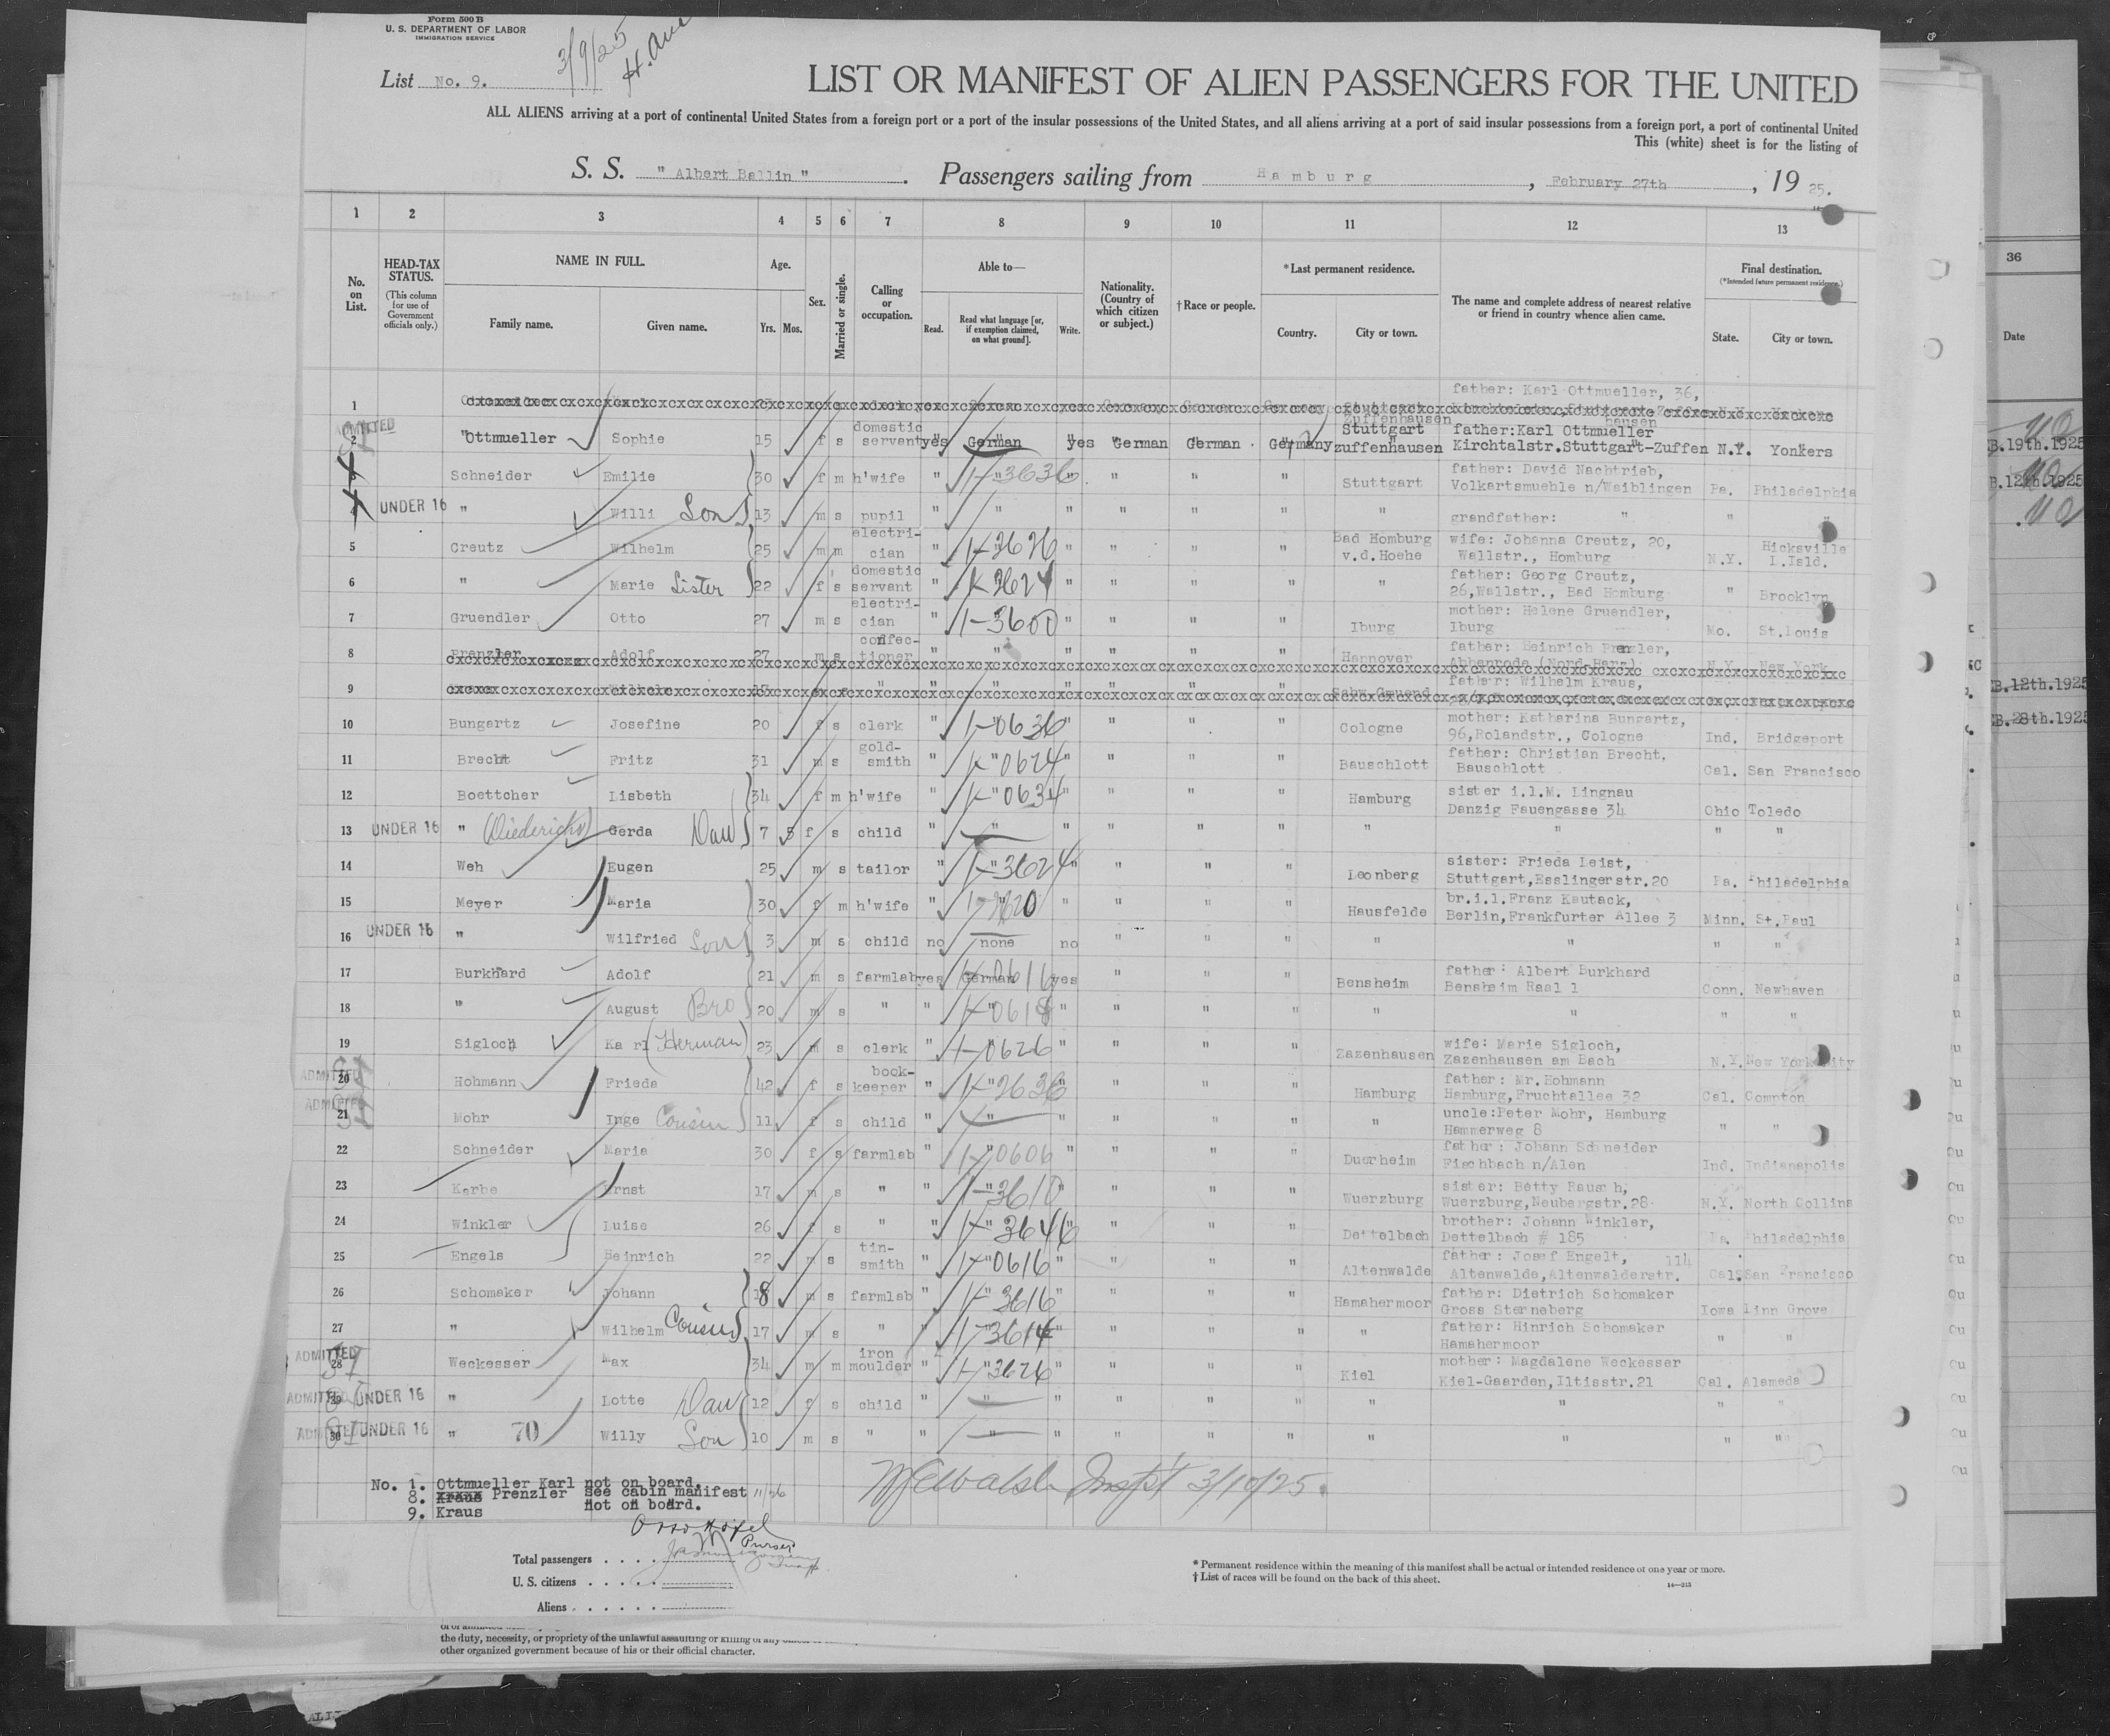 Form 500 B
U. S. DEPARTMENT OF LABOR
IMMIGRATION SERVICE
3/9/25
List No. 9.
LIST OR MANIFEST OF ALIEN PASSENGERS FOR THE UNITED
ALL ALIENS arriving at a port of continental United States from a foreign port or a port of the insular possessions of the United States, and all aliens arriving at a port of said insular possessions from a foreign port, a port of continental United
This (white) sheet is for the listing of
S. S. " Albert Ballin ". Passengers sailing from Hamburg, February 27th, 19 25.
1 2 3 4 5 6 7 8 9 10 11 12 13
No. on List. HEAD-TAX STATUS. (This column for use of Government officials only.) NAME IN FULL. Family name. Given name. Age. Yrs. Mos. Sex. Married or single. Calling or occupation. Able to— Read. Read what language [or, if exemption claimed, on what ground]. Write. Nationality. (Country of which citizen or subject.) †Race or people. *Last permanent residence. Country. City or town. The name and complete address of nearest relative or friend in country whence alien came. Final destination. (*Intended future permanent residence.) State. City or town.
36
Date
1 father: Karl Ottmueller, 36,
ADMITTED 2 "Ottmueller Sophie 15 f s domestic servant yes German yes German German Germany Stuttgart zuffenhausen father:Karl Ottmueller Kirchtalstr.Stuttgart-Zuffenhausen N.Y. Yonkers
3 Schneider Emilie 30 f m h'wife " 1-3636 " " " Stuttgart father: David Nachtrieb, Volkartsmuehle n/Waiblingen Pa. Philadelphia
4 UNDER 16 " Willi Son 13 m s pupil " " " " " " " grandfather: " " "
5 Creutz Wilhelm 25 m m electrician " 1-3626 " " " " Bad Homburg v.d.Hoehe wife: Johanna Creutz, 20, Wallstr., Homburg N.Y. Hicksville L.Isld.
6 " Marie Sister 22 f s domestic servant " 1-3624 " " " " " father: Georg Creutz, 26,Wallstr., Bad Homburg " Brooklyn
7 Gruendler Otto 27 m s electrician " 1-3600 " " " " Iburg mother: Helene Gruendler, Iburg Mo. St.Louis
8 Prenzler Adolf 27 m s confectioner " " " " " " Hannover father: Heinrich Prenzler, Abbenrode (Nord-Harz) N.Y. New York
9 father: Wilhelm Kraus,
10 Bungartz Josefine 20 f s clerk " 1-0636 " " " " Cologne mother: Katharina Bungartz, 96,Rolandstr., Cologne Ind. Bridgeport
11 Brecht Fritz 31 m s goldsmith " 1-0624 " " " " Bauschlott father: Christian Brecht, Bauschlott Cal. San Francisco
12 Boettcher Lisbeth 34 f m h'wife " 1-0634 " " " " Hamburg sister i.l.M. Lingnau Danzig Fauengasse 34 Ohio Toledo
13 UNDER 16 " (Diederichs) Gerda Dau 7 5 f s child " " " " " " " " " "
14 Weh Eugen 25 m s tailor " 1-3624 " " " " Leonberg sister: Frieda Leist, Stuttgart,Esslingerstr.20 Pa. Philadelphia
15 Meyer Maria 30 f m h'wife " " " " " Hausfelde br.i.l.Franz Kautack, Berlin,Frankfurter Allee 3 Minn. St.Paul
16 UNDER 16 " Wilfried Son 3 m s child no none no " " " " " " "
17 Burkhard Adolf 21 m s farmlab yes German 1-0616 yes " " " Bensheim father: Albert Burkhard Bensheim Raal 1 Conn. Newhaven
18 " August Bro 20 m s " " 1-0618 " " " " " " " "
19 Sigloch Karl (Herman) 23 m s clerk " 1-0626 " " " " Zazenhausen wife: Marie Sigloch, Zazenhausen am Bach N.Y. New York City
ADMITTED 20 Hohmann Frieda 42 f s bookkeeper " 1-3636 " " " " Hamburg father: Mr.Hohmann Hamburg,Fruchtallee 32 Cal. Compton
ADMITTED 21 Mohr Inge Cousin 11 f s child " " " " " " " uncle:Peter Mohr, Hamburg Hammerweg 8 " "
22 Schneider Maria 30 f s farmlab " 1-0606 " " " " Duerheim father: Johann Schneider Fischbach n/Alen Ind. Indianapolis
23 Karbe Ernst 17 m s " " 1-3610 " " " " Wuerzburg sister: Betty Rausch, Wuerzburg,Neubergstr.28 N.Y. North Collins
24 Winkler Luise 26 f s " " 1-3646 " " " " Dettelbach brother: Johann Winkler, Dettelbach # 185 Pa. Philadelphia
25 Engels Heinrich 22 m s tinsmith " 1-0616 " " " " Altenwalde father: Josef Engelt, 114 Altenwalde,Altenwalderstr. Cal. San Francisco
26 Schomaker Johann 18 m s farmlab " 1-3616 " " " " Hamahermoor father: Dietrich Schomaker Gross Sterneberg Iowa Linn Grove
27 " Wilhelm Cousin 17 m s " " 1-3614 " " " " " father: Hinrich Schomaker Hamahermoor " "
ADMITTED 28 Weckesser Max 34 m m iron moulder " 1-3626 " " " " Kiel mother: Magdalene Weckesser Kiel-Gaarden,Iltisstr.21 Cal. Alameda
ADMITTED 29 UNDER 16 " Lotte Dau 12 f s child " " " " " " " " " "
ADMITTED 30 UNDER 16 " 70 Willy Son 10 m s " " " " " " " " " " "
No. 1. Ottmueller Karl not on board.
8. Kraus Prenzler see cabin manifest
9. Kraus not on board.
Inspt 3/10/25.
Purser
Total passengers . . . .
U. S. citizens . . . . .
Aliens . . . . . .
* Permanent residence within the meaning of this manifest shall be actual or intended residence of one year or more.
† List of races will be found on the back of this sheet.
14—213
the duty, necessity, or propriety of the unlawful assaulting or killing of any
other organized government because of his or their official character.
B.19th.1925
B.12th.1925
EB.12th.1925
EB.28th.1925